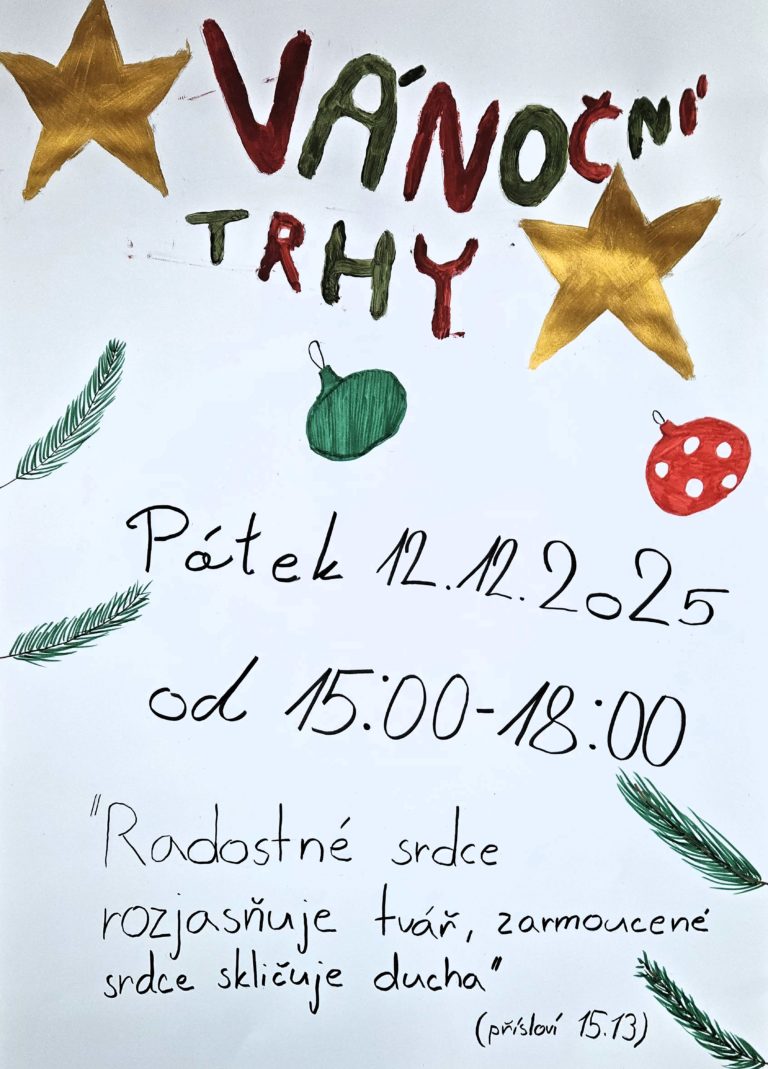 VÁNOČNÍ
TRHY
Pátek 12.12.2025
od 15:00-18:00
"Radostné srdce
rozjasňuje tvář, zarmoucené
srdce skličuje ducha"
(přísloví 15.13)